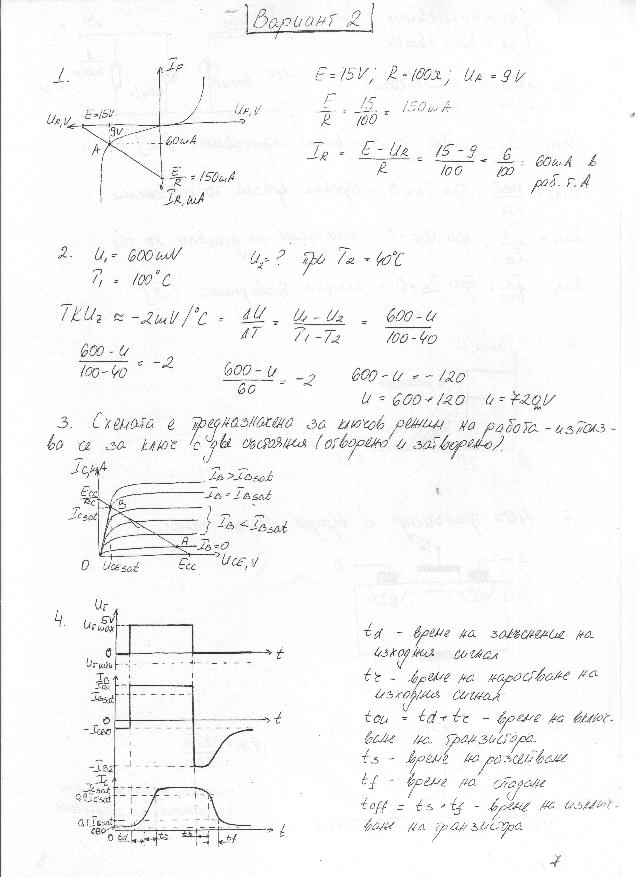 Вариант 2
1.
IF
UR,V
E=15V
9V
UF,V
A
60mA
E/R = 150mA
IR,mA
E=15V; R=100Ω; UR=9V
E/R = 15/100 = 150mA
IR = (E - UR)/R = (15 - 9)/100 = 6/100 = 60mA в
раб. т. А
2. U1 = 600mV U2 = ? при T2 = 40°C
T1 = 100°C
TKUz ≈ -2mV/°C = ΔU/ΔT = (U1 - U2)/(T1 - T2) = (600 - U)/(100 - 40)
(600 - U)/(100 - 40) = -2 (600 - U)/60 = -2 600 - U = -120
U = 600 + 120 U = 720mV
3. Схемата е предназначена за ключов режим на работа - използ-
ва се за ключ с две състояния (отворено и затворено).
IC,mA
IB > IBsat
Ecc/Rc
B
IB = IBsat
ICsat
IB < IBsat
A
IB=0
0 UCEsat Ecc UCE,V
4.
UГ
5V
UГmax
0
t
UГmin
IB
IB1
IBsat
0
t
-ICBO
-IB2
IC
ICsat
0,9ICsat
0 td tr ts tf t
td - време на закъснение на
изходния сигнал
tr - време на нарастване на
изходния сигнал
ton = td + tr - време на включ-
ване на транзистора
ts - време на разсейване
tf - време на спадане
toff = ts + tf - време на изключ-
ване на транзистора
7